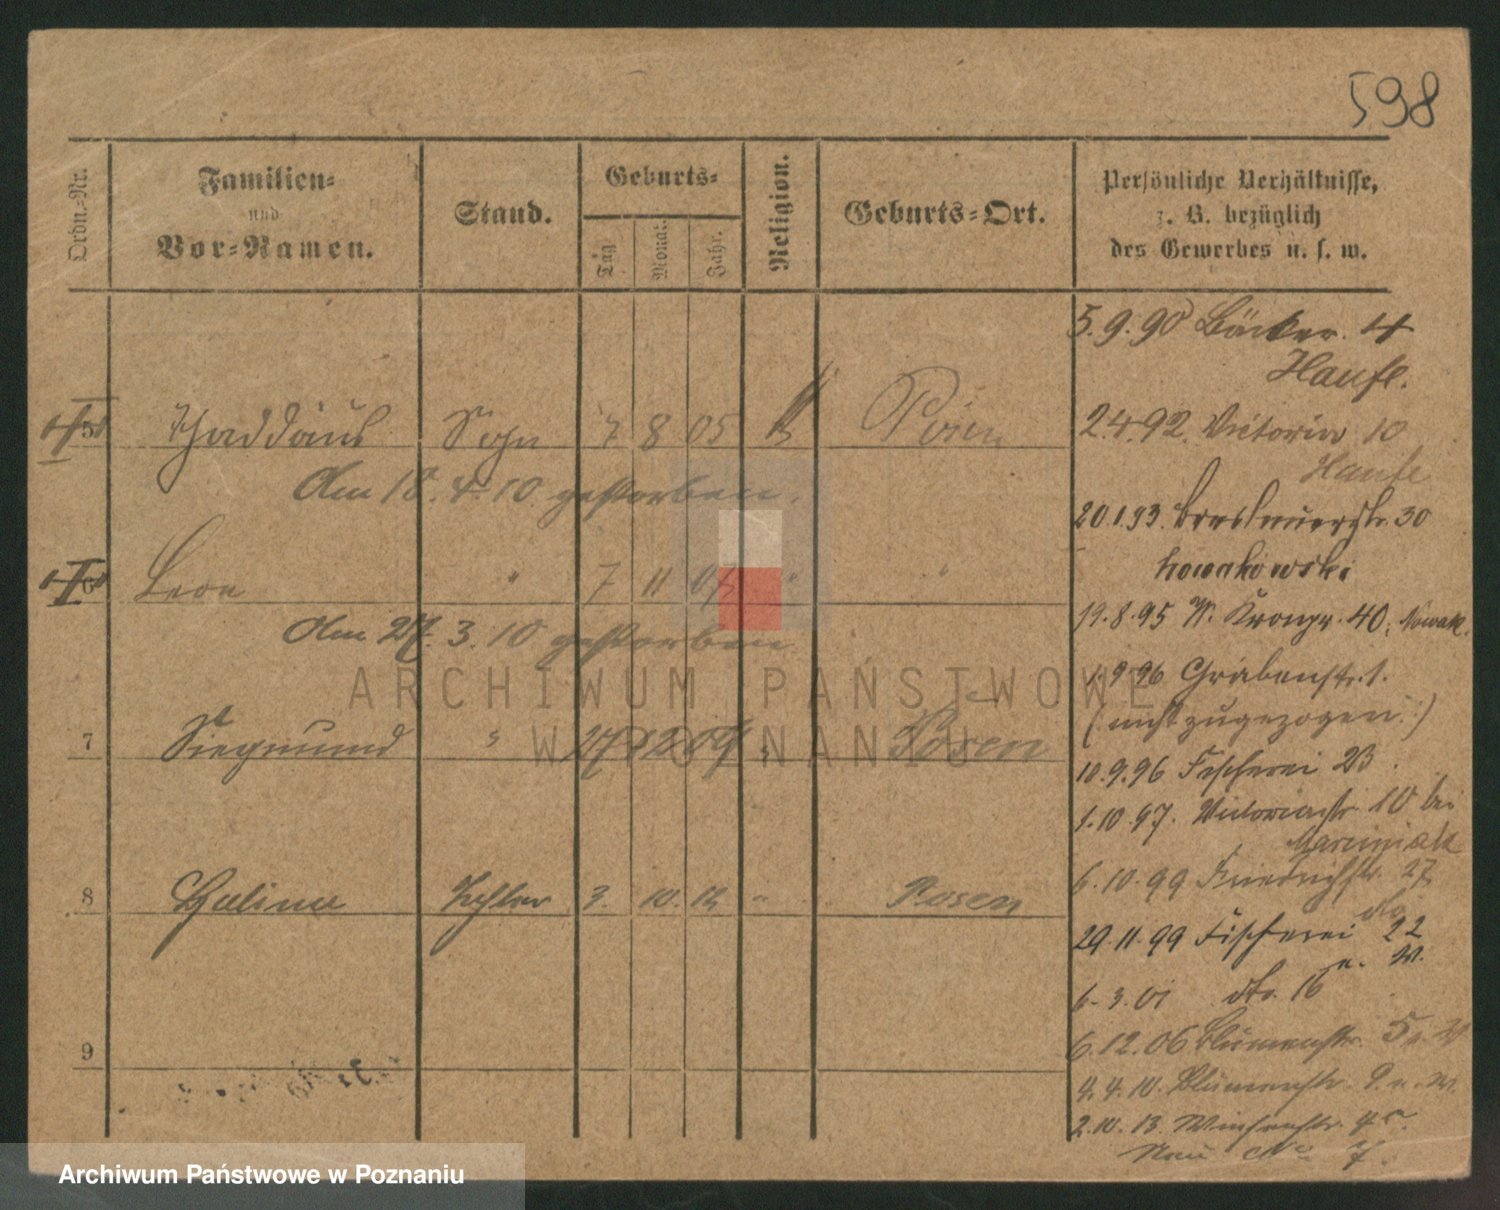 598
Ordn.-Nr.
Familien-
und
Vor-Namen.
Stand.
Geburts-
Tag
Monat.
Jahr.
Religion.
Geburts-Ort.
Persönliche Verhältnisse,
z. B. bezüglich
des Gewerbes u. s. w.
5.9.90 Bäcker. 4
Haufe.
5 Thaddäus Sohn 7 8 05 Posen
2.4.92. Victoria 10
Haufe
Am 18.4.10 gestorben.
20.1.93. Breslauerstr. 30
Nowakowski
6 Leon " 7 11 07 " "
19.8.95 W. Kronpr. 40, Nowak.
Am 27.3.10 gestorben
1.9.96 Grabenstr. 1.
(nicht zugezogen.)
7 Siegmund " 27 12 09 " Posen
10.9.96 Fischerei 23.
1.10.97. Victoriastr. 10 bei
Marciniak
6.10.99 Friedrichstr. 27
8 Halina Tochter 3. 10. 12 " Posen
dto
29.11.99 Fischerei 22
n. W.
6.3.01 dto. 16
6.12.06 Blumenstr. 5 n. W
9
4.4.10. Blumenstr. 9 n. W.
2.10.13.
Neu No 7.
ARCHIWUM PAŃSTWOWE
W POZNANIU
Archiwum Państwowe w Poznaniu